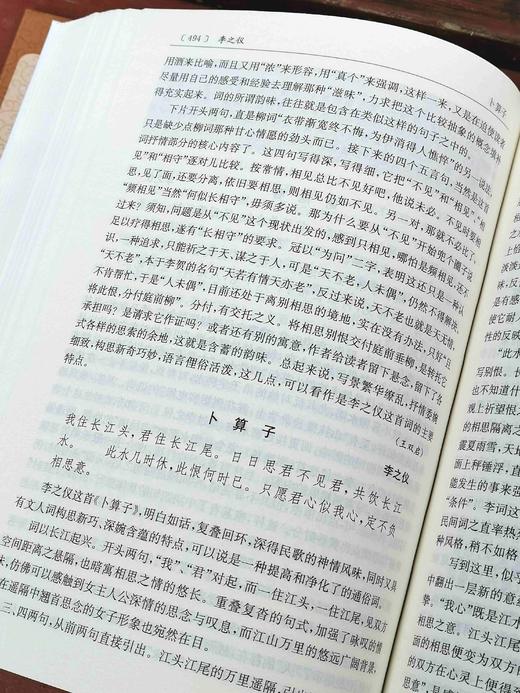 〔494〕 李之仪
用酒来比喻，而且又用“浓”来形容，用“真个”来强调，这样一来，又是在迫使读者
尽量用自己的感受和经验去理解那种“滋味”，力求把这个比较抽象的概念填补
得充实起来。词的所谓韵味，往往就是包含在类似这样的句子之中的。
下片开头两句，直是柳词“衣带渐宽终不悔，为伊消得人憔悴”的另一说法，
只是缺少点柳词那种甘心情愿的劲头而已。接下来的四个五言句，当然是这首
词抒情部分的核心内容了。这四句写得深，写得细，它把“不见”和“相见”、“相
见”和“相守”逐对儿比较。按常情，相见总比不见好吧，他说未必。不见时要相
思，见了面，还要分离，依旧要相思，则相见仍如不见。另一对，那就不必比了，
“频相见”当然“何似长相守”，毋须多说。那为什么要从“不见”开始兜个圈子说
过来？须知，问题是从“不见”这个现状出发的，感到只相见，哪怕是频相见，还不
足以疗得相思，遂有“长相守”的要求。冠以“为问”二字，表明这还只是一种认
识，一种追求，只能祈之于天、谋之于人，可是“天不老，人未偶”，仍然不得解决。
“天不老”，本于李贺的名句“天若有情天亦老”，反过来说，天不老也就是天无情，
不肯帮忙，于是“人未偶”，目前还处于离别相思的境地，实在没有办法，只好“且
将此恨，分付庭前柳”。分付，有交托之义。将相思别恨交付庭前垂柳，是转托它
承担吗？是请求它作证吗？或者还有别的寓意，作者给读者留下悬念，留下了各
式各样的思索的余地，这就是含蓄的韵味。总起来说，写景繁华缭乱，抒情委婉
细致，构思新奇巧妙，语言俚俗活泼，这几点，可以看作是李之仪这首词的主要
特点。
（王双启）
卜算子
李之仪
我住长江头，君住长江尾。日日思君不见君，共饮长江
水。 此水几时休，此恨何时已。只愿君心似我心，定不负
相思意。
李之仪这首《卜算子》，明白如话，复叠回环，深得民歌的神情风味，同时又具
有文人词构思新巧、深婉含蕴的特点，可以说是一种提高和净化了的通俗词。
词以长江起兴。开头两句，“我”、“君”对起，而一住江头，一住江尾，见双方
空间距离之悬隔，也暗寓相思之情的悠长。重叠复沓的句式，加强了咏叹的情
味，仿佛可以感触到女主人公深情的思念与叹息，而江山万里的悠远广阔背景，
在遥隔中翘首思念的女子形象也宛然在目。
三、四两句，从前两句直接引出。江头江尾的万里遥隔，引出
卜算子